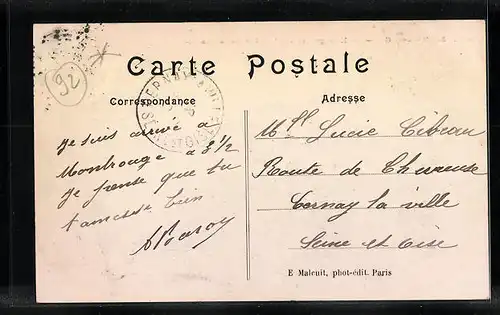 92
Carte Postale
Correspondance
Adresse
Je suis arrivé a
Montrouge a 3 1/2
Je pense que tu
t'amuse bien
Mlle Lucie
Route de Chevreuse
Cernay la ville
Seine et Oise
E Malcuit, phot-édit. Paris